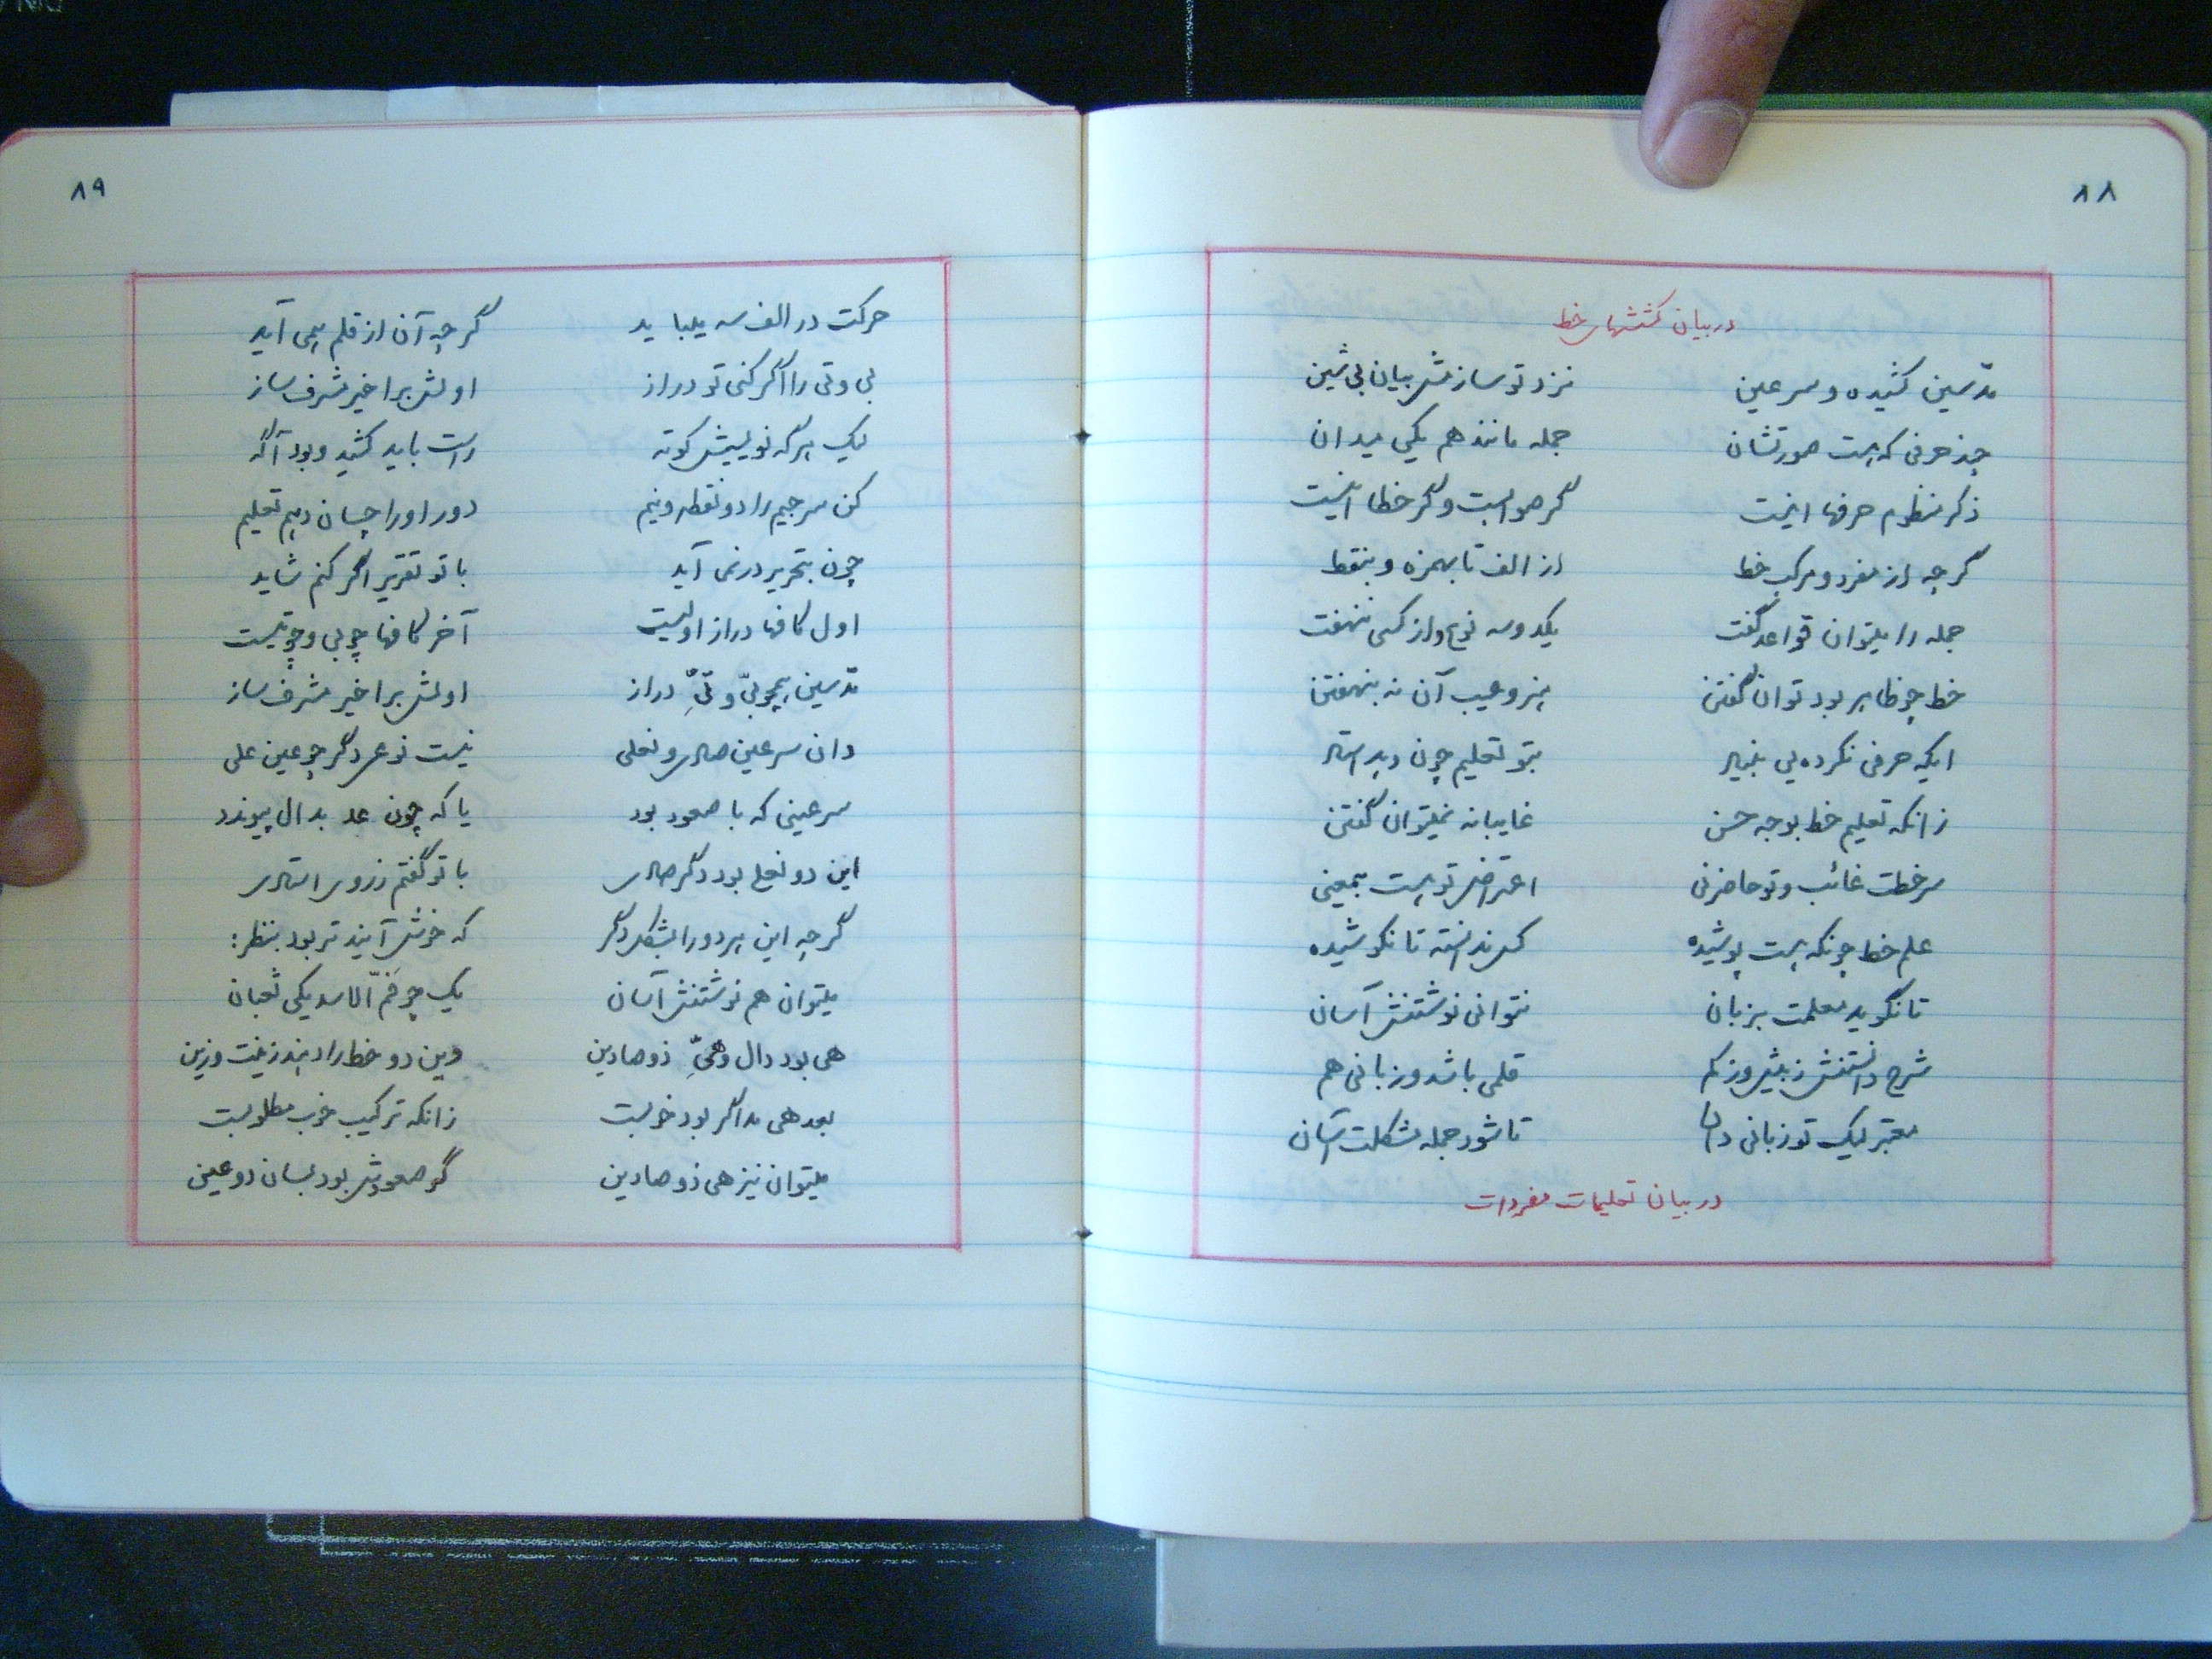 ۸۸
در بیان کششهای خط
مدّ سین کشیده و سر عین نزد تو سازمش بیان بی شین
چند حرفی که هست صورتشان جمله مانند هم یکی میدان
ذکر منظوم حرفها اینست گر صوابست و گر خطا اینست
گر چه از مفرد و مرکب خط از الف تا بهمزه و بنقط
جمله را میتوان قواعد گفت یکدوسه نوع و از کسی ننهفت
خط چو ظاهر بود توان گفتن هنر و عیب آن نه بنهفتن
ایکه حرفی نکرده یی بنیاد بتو تعلیم چون دهد استاد
زانکه تعلیم خط بوجه حسن غایبانه نمیتوان گفتن
سر خطت غائب و تو حاضر نی اعتراض تو هست بیمعنی
علم خط چونکه هست پوشیده کس ندانسته تا نکوشیده
تا نگوید معلمت بزبان نتوانی نوشتنش آسان
شرح دانستنش ز بیش و ز کم قلمی باشد و زبانی هم
معتبر لیک تو زبانی دان تا شود جمله مشکلت آسان
در بیان تعلیمات مفردات
۸۹
حرکت در الف سه میباید گر چه آن از قلم همی آید
بی و تی را اگر کنی تو دراز اولش بر اخیر مشرف ساز
لیک هرگه نویسیش کوته راست باید کشید و بود آگه
کن سر جیم را دو نقطه و نیم دور اورا چسان دهم تعلیم
چون بتحریر در نمی آید با تو تقریر اگر کنم شاید
اول کافها دراز اولیست آخر کافها چو بی و چو تیست
مدّ سین همچو بیّ و تیّ دراز اولش بر اخیر مشرف ساز
دان سر عین صادی و نعلی نیست نوعی دگر چو عین علی
سر عینی که با صعود بود یا که چون عد بدال پیوندد
این دو نعل بود دگر صادی با تو گفتم ز روی استادی
گر چه این هر دو را بشکل دگر که خوش آینده تر بود بنظر:
میتوان هم نوشتنش آسان یک چو فم الاسد یکی ثعبان
هی بود دال و هیّ ذو صادین وین دو خط را دهند زینت و زین
بعد هی مد اگر بود خوبست زانکه ترکیب خوب مطلوبست
میتوان نیز هی ذو صادین گر صعودش بود بسان دو عین